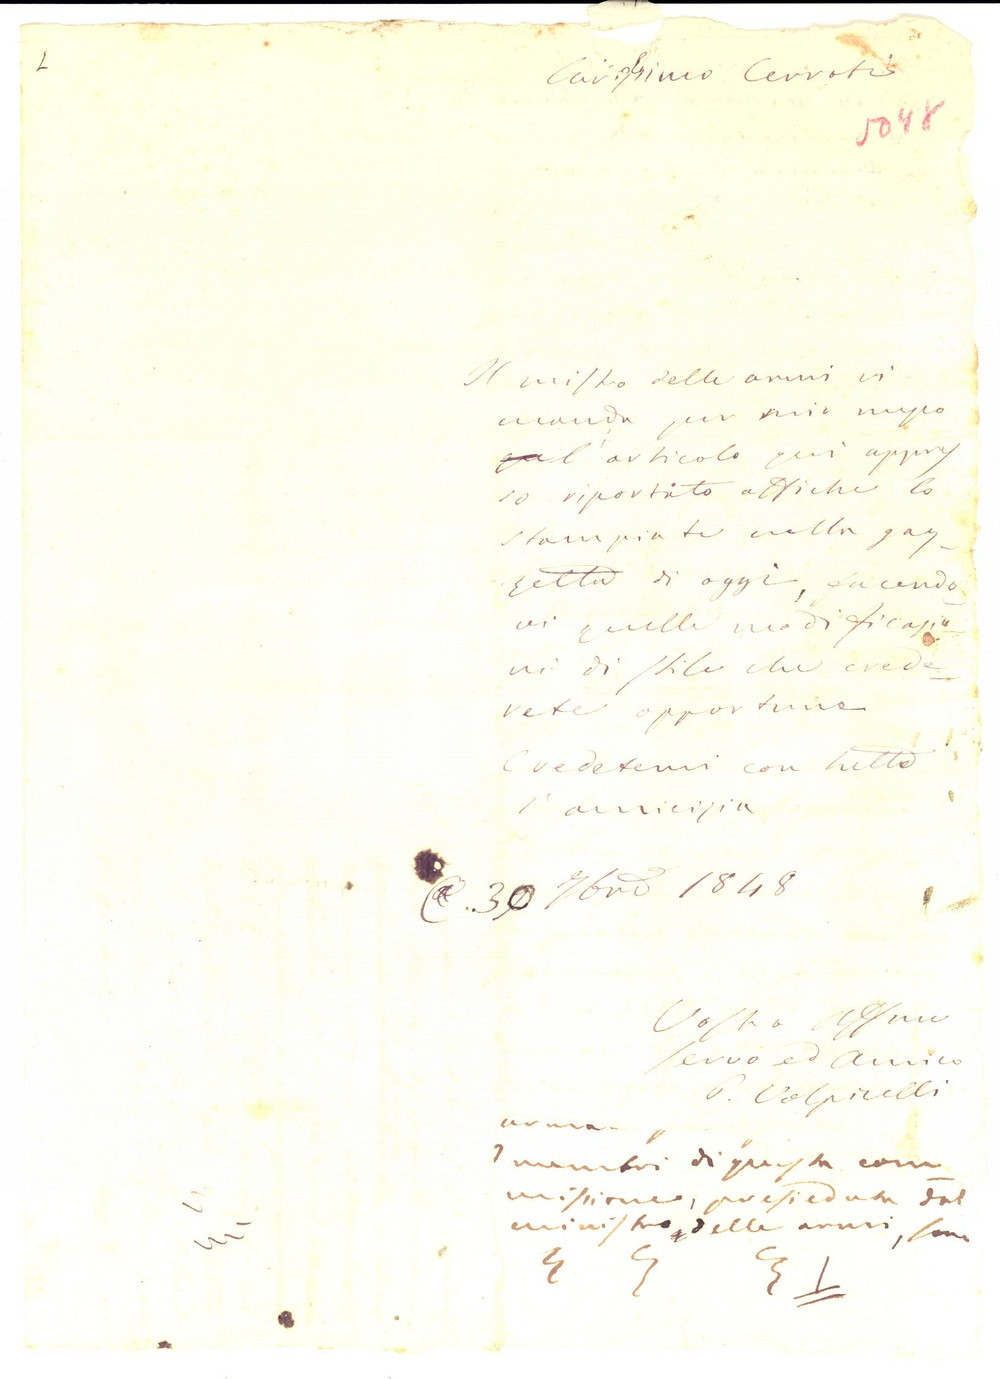 Carissimo Cerroti
5048
Il mistro delle armi vi
manda per mio mezzo
l'articolo qui appres
so riportato affiche lo
stampiate nella gaz-
zetta di oggi, facendo-
vi quelle modificazio-
ni di stile che crede-
rete opportune
Credetemi con tutta
l'amicizia
C. 30 9bre 1848
Vostro Affmo
servo ed Amico
P. Volpicelli
arma-
I membri di questa com
missione, presieduta dal
ministro delle armi, sono